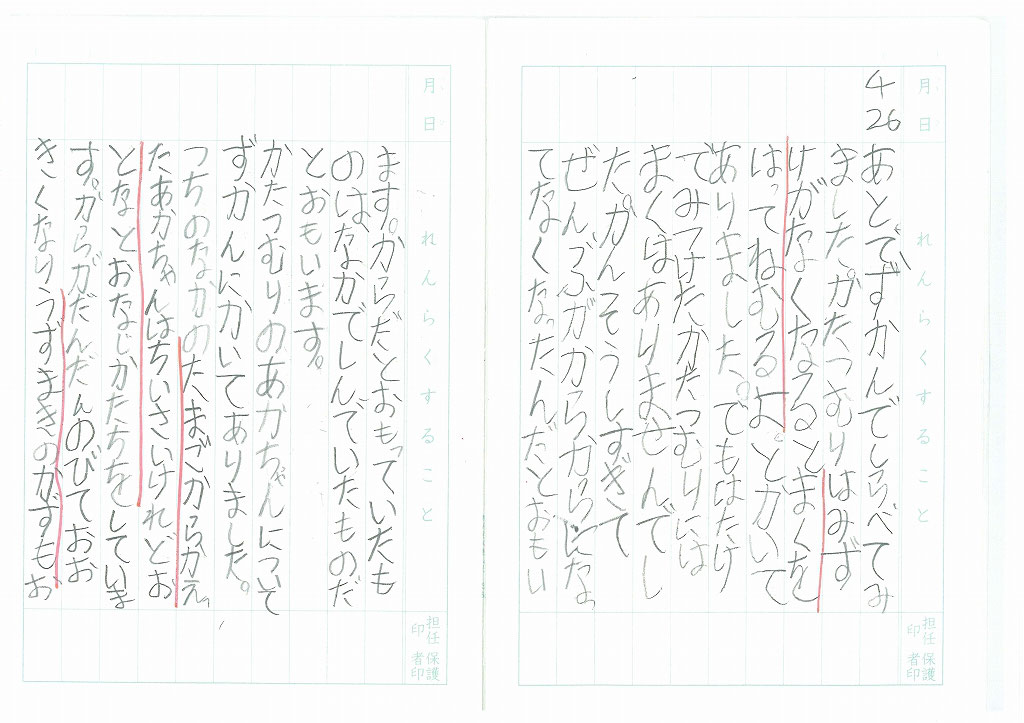 月
日
れんらくすること
担任印
保護者印
4
26
あとでずかんでしらべてみ
ました。かたつむりはみず
けがなくなるとまくを
はってねむるよとかいて
ありました。でもはたけ
でみつけたかたつむりには
まくはありませんでし
た。かんそうしすぎて
ぜんぶがからからになっ
てなくなったんだとおもい
月
日
れんらくすること
担任印
保護者印
ます。からだとおもっていたも
のはなかでしんでいたものだ
とおもいます。
かたつむりのあかちゃんについて
ずかんにかいてありました。
つちのなかのたまごからかえっ
たあかちゃんはちいさいけれどお
となとおなじかたちをしていま
す。からがだんだんのびておお
きくなりうずまきのかずもお